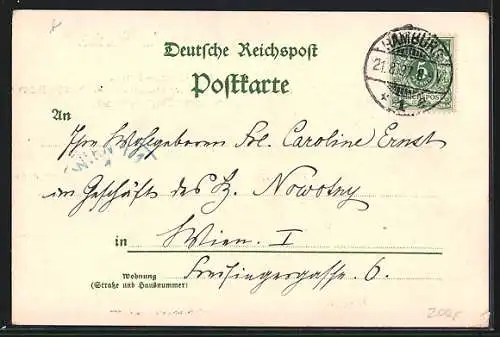 Deutsche Reichspost
Postkarte
HAMBURG
21.8.97
* 1
An
Ihre Wohlgeboren Frl. Caroline Ernst
im Geschäft des H. Nowotny
in Wien. I
Freisingergasse 6.
Wohnung
(Straße und Hausnummer)